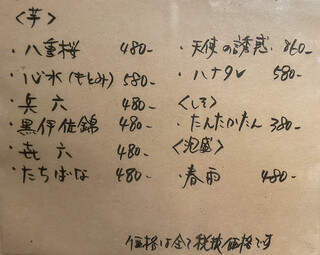 <芋>
・八重桜 480-
・心水(もとみ) 580-
・兵六 480-
・黒伊佐錦 480-
・㐂六 480-
・たちばな 480-
・天使の誘惑 860-
・ハナタレ 580-
<しそ>
・たんたかたん 380-
<泡盛>
・春雨 480-
価格は全て税抜価格です